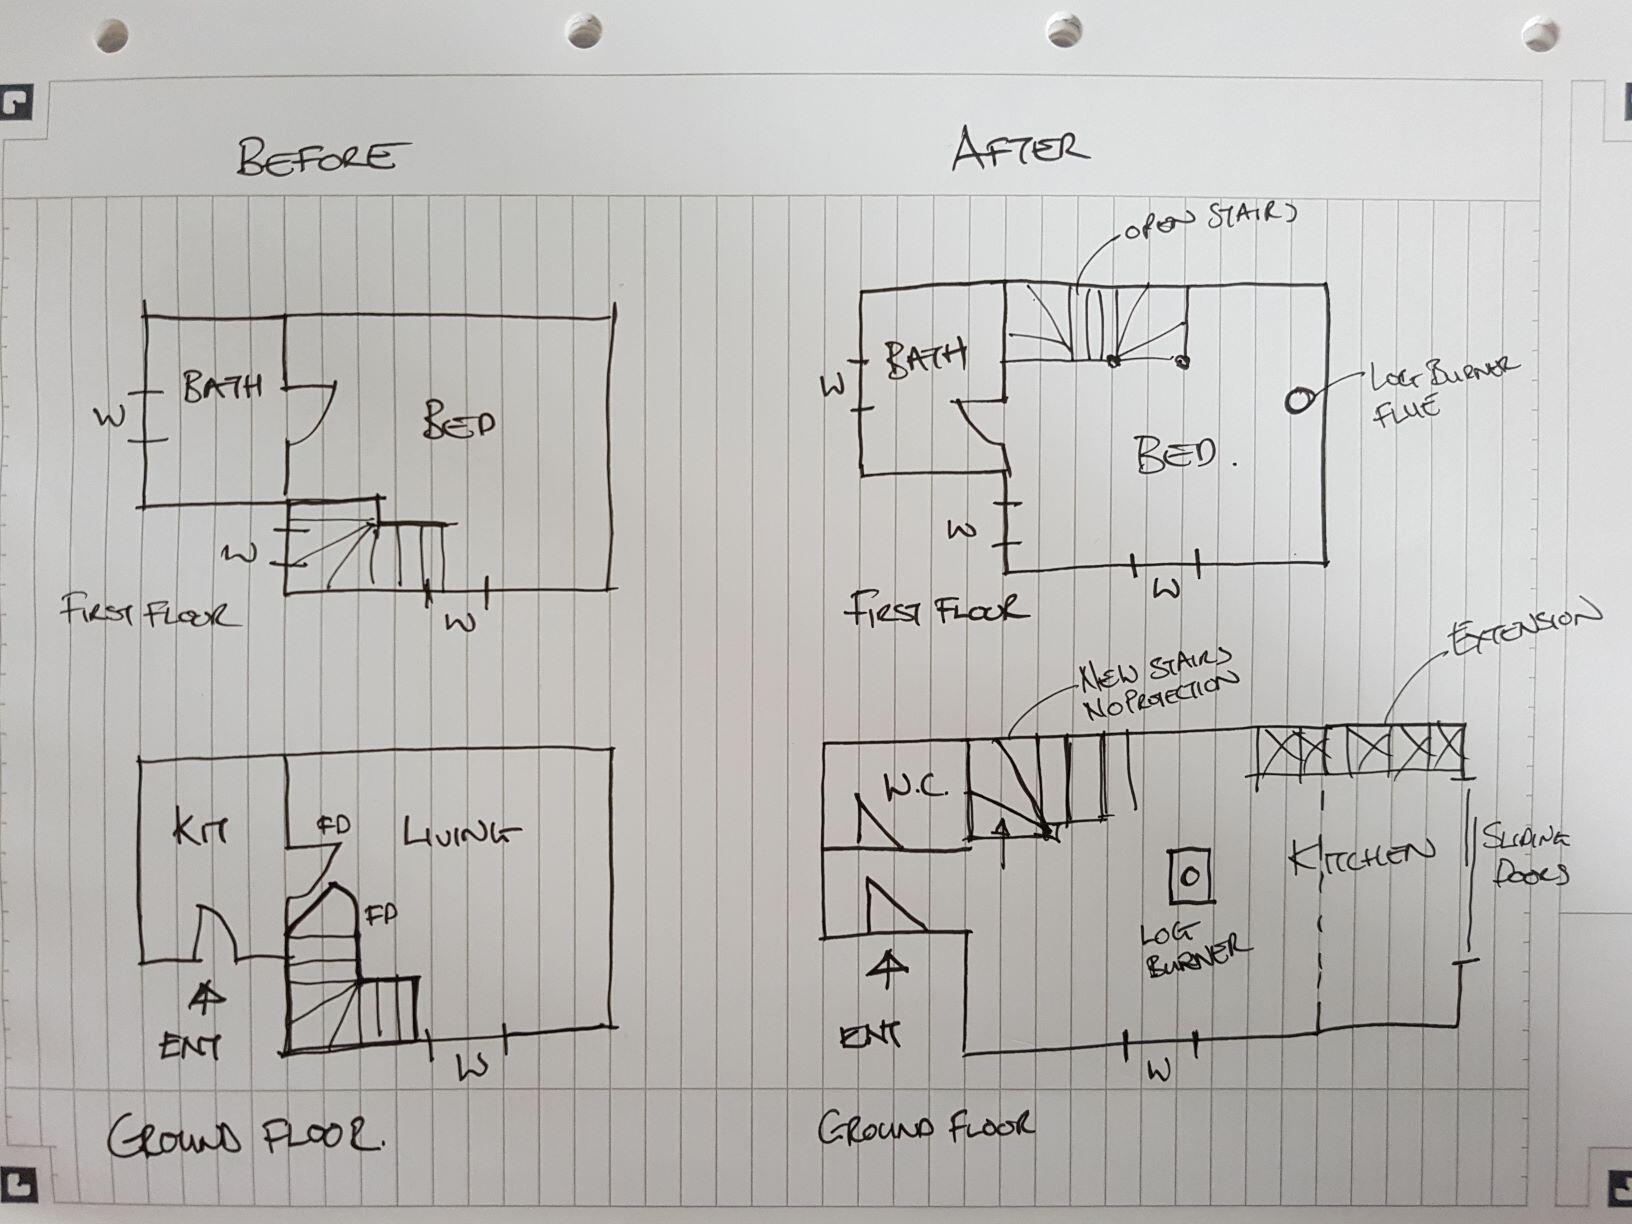 BEFORE
AFTER
OPEN STAIRS
BATH
W
BED
W
W
FIRST FLOOR
BATH
W
LOG BURNER
FLUE
BED.
W
W
FIRST FLOOR
EXTENSION
NEW STAIRS
NO PROJECTION
KIT
FD
LIVING
FD
ENT
W
GROUND FLOOR.
W.C.
KITCHEN
SLIDING
DOORS
LOG
BURNER
ENT
W
GROUND FLOOR